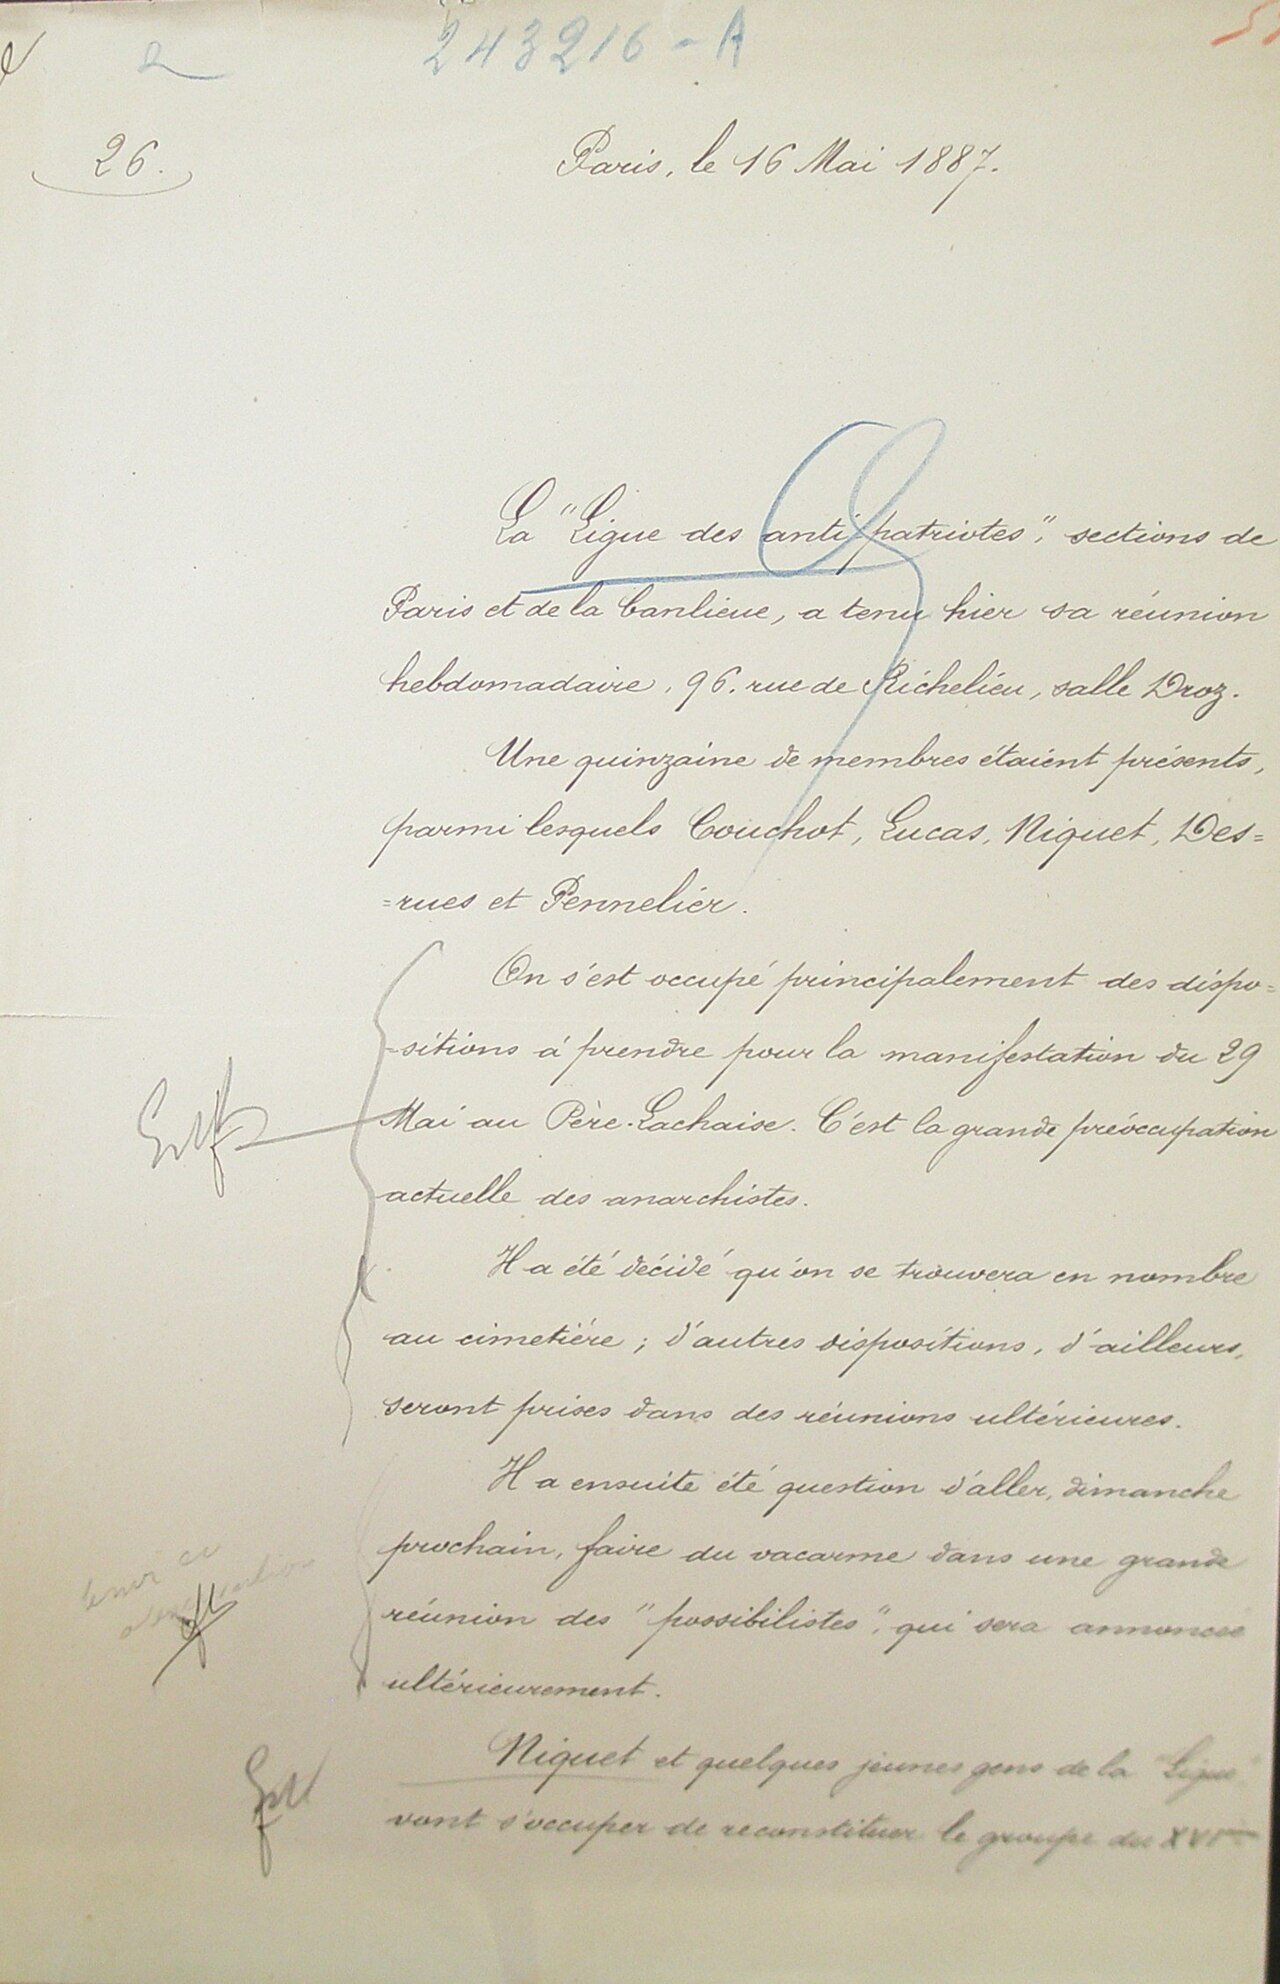 243216 - A
26.
Paris, le 16 Mai 1887.
La "Ligue des antipatriotes", sections de
Paris et de la banlieue, a tenu hier sa réunion
hebdomadaire, 96. rue de Richelieu, salle Droz.
Une quinzaine de membres étaient présents,
parmi lesquels Couchot, Lucas, Niquet, Des=
=rues et Pennelier.
On s'est occupé principalement des dispo=
=sitions à prendre pour la manifestation du 29
Mai au Père-Lachaise. C'est la grande préoccupation
actuelle des anarchistes.
Il a été décidé qu'on se trouvera en nombre
au cimetière ; d'autres dispositions, d'ailleurs,
seront prises dans des réunions ultérieures.
Il a ensuite été question d'aller, dimanche
prochain, faire du vacarme dans une grande
réunion des "possibilistes", qui sera annoncée
ultérieurement.
Niquet et quelques jeunes gens de la "Ligue"
vont s'occuper de reconstituer le groupe du XVIme